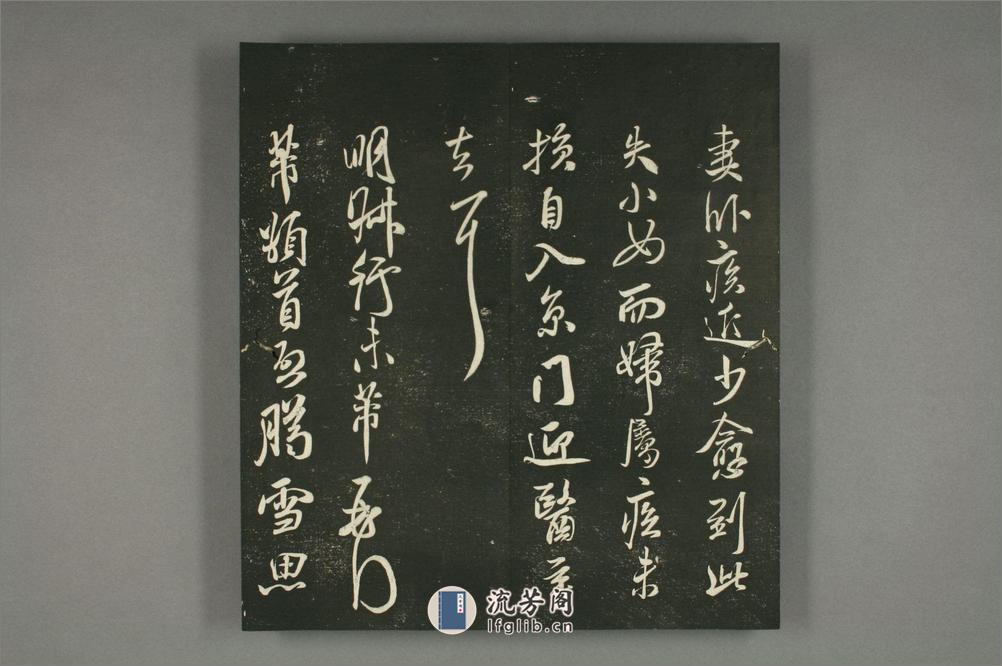 妻卧疾近少愈到此
失小女而婦屬疾未
損自入京门迎醫至
去耳
明時行未芾
芾頓首啟腾雪思
流芳阁
lfglib.cn